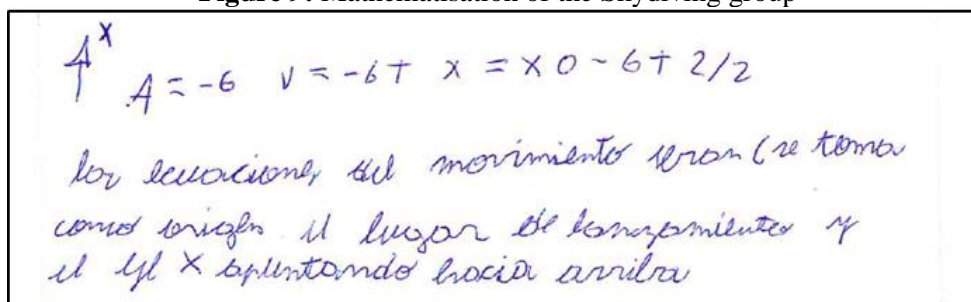 Figure 9. Mathematisation of the Skydiving group
X
A = -6 V = -6T X = X0 - 6T2/2
las ecuaciones del movimiento seran (se toma
como origen el lugar de lanzamiento y
el eje X apuntando hacia arriba